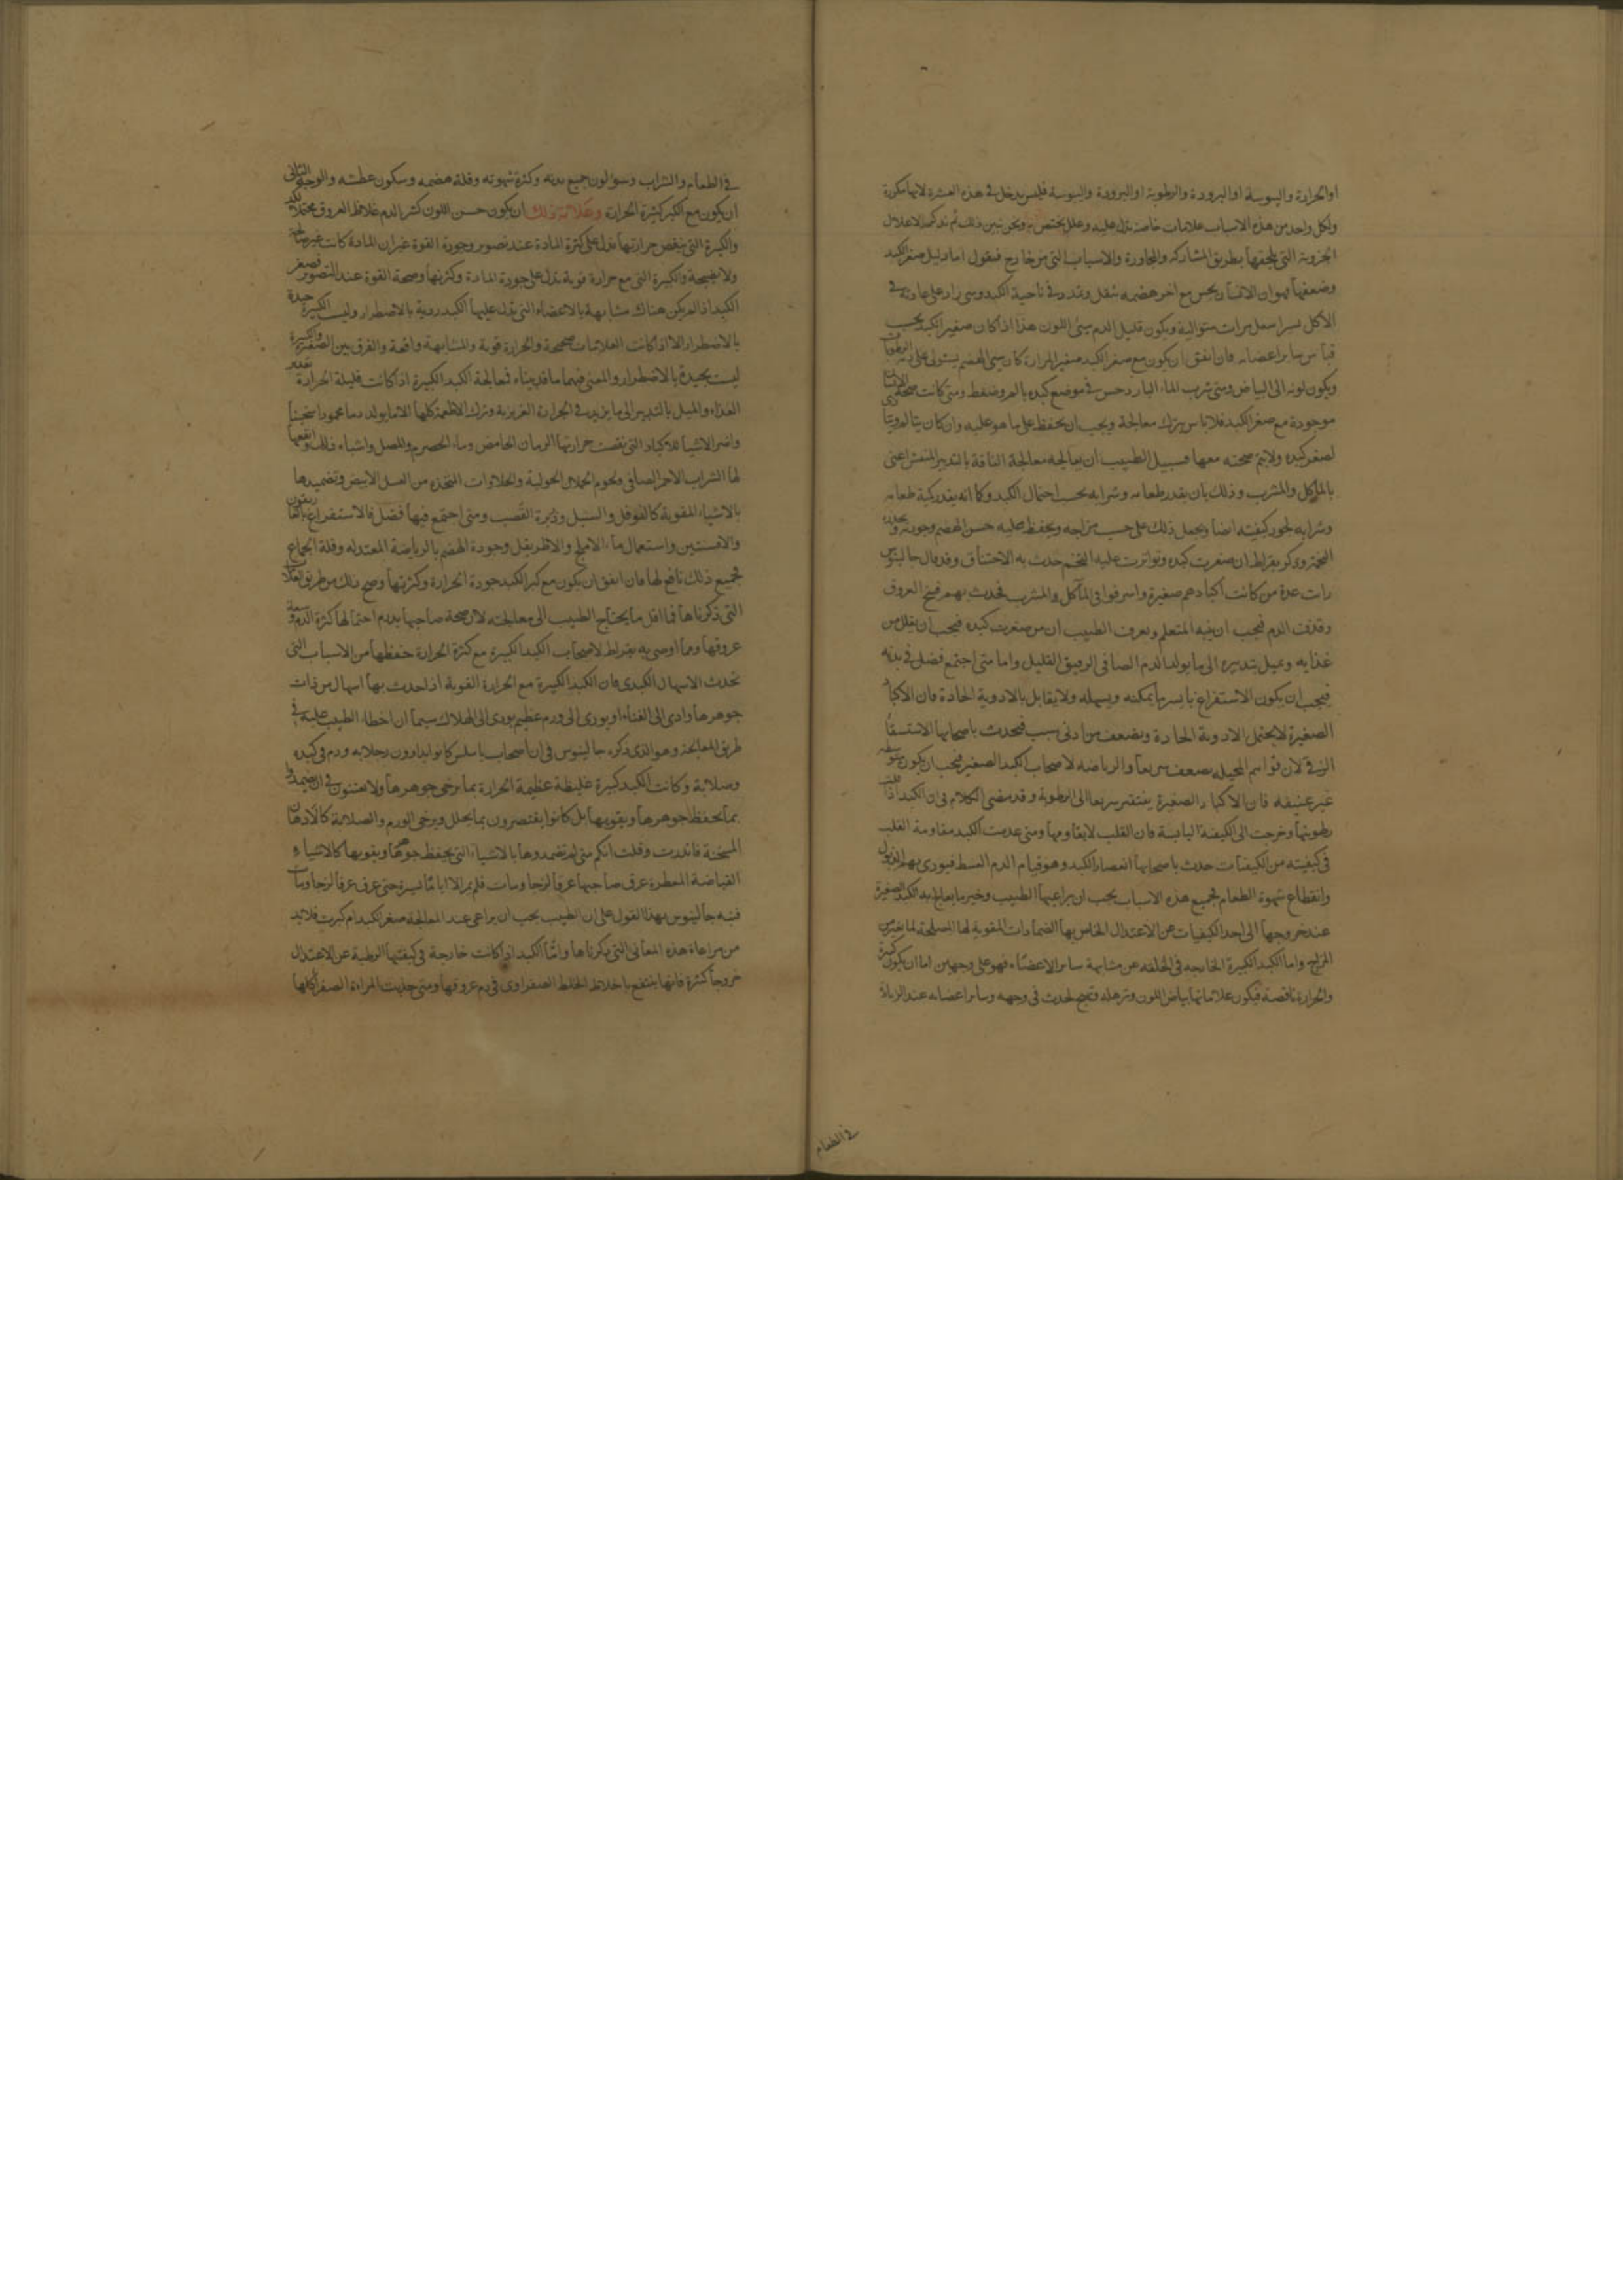 او الحرارة واليبوسة او البرودة والرطوبة او البرودة واليبوسة فليس يدخل في هذه العشرة لانها مكررة
ولكل واحد من هذه الاسباب علامات خاصة تدل عليه وعلل يختص به ونحن نبين ذلك ثم نذكر الاعلال
الجزوية التي تلحقها بطريق المشاركه والمجاورة والاسباب التي من خارج فنقول اما دليل صغر الكبد
وضعفها فهو ان الانسان يحس مع اخر هضمه بثقل وتمدد في ناحية الكبد ومتى زاد على عادته في
الاكل يسيرا سعل مرات متوالية ويكون قليل الدم سيئ اللون هذا اذا كان صغير الكبد بحسب
قياس ساير اعضائه فان اتفق ان يكون مع صغر الكبد صغير الحرارة كان سيئ الهضم يستولى على بدنه الرطوبات
ويكون لونه الى البياض ومتى شرب الماء البارد حس في موضع كبده بالم وضغط ومتى كانت صحة
موجودة مع صغر الكبد فلا باس بترك معالجة ويجب ان يحتفظ على ما هو عليه وان كان يتالم دايما
لصغر كبده ولا يتم صحته معها فسبيل الطبيب ان يعالجه معالجة الناقة بالتدبير المنعش اعنى
بالماكل والمشرب وذلك بان يقدر طعامه وشرابه بحسب احتمال الكبد وكما انه يقدر كمية طعامه
وشرابه يجود كيفيته ايضا ويجعل ذلك على حسب مزاجه ويحفظ عليه حسن الهضم وجودته
التخمة وذكر بقراط ان من صغرت كبده وتواترت عليه التخم حدث به الاختناق وقد قال جالينوس
رايت عدة من كانت اكبادهم صغيرة واسرفوا في الماكل والمشرب فحدث بهم فسخ العروق
وقذف الدم فيجب ان ينبه المتعلم ويعرف الطبيب ان من صغرت كبده فيجب ان يقلل من
غذايه ويميل بتدبيره الى ما يولد الدم الصافى الرقيق القليل واما متى اجتمع فضل في بدنه
فيجب ان يكون الاستفراغ بايسر ما يمكنه ويسهله ولا يقابل بالادوية الحادة فان الاكباد
الصغيرة لا يحتمل الادوية الحادة وتضعف من ادنى سبب فيحدث باصحابها الاستسقا
الزقى لان قواهم المحيله تضعف سريعا والرياضه لاصحاب الكبد الصغير فيجب ان يكون متوسطه
غير عنيفه فان الاكباد الصغيرة يفتقر سريعا الى الرطوبة وقد مضى الكلام في ان الكبد اذا قلت
رطوبتها وخرجت الى الكيفية اليابسة فان القلب لا يقاومها ومتى عدمت الكبد مقاومة القلب
في كيفيته من الكيفيات حدث باصحابها انعصار الكبد وهو قيام الدم العبيط فيودى بهم الى الذبول
وانقطاع شهوة الطعام فجميع هذه الاسباب يجب ان يراعيها الطبيب وخير ما يعالج به الكبد الصغيرة
عند خروجها الى احد الكيفيات عن الاعتدال الخاص بها الضمادات المقوية لها المصلحة لما تغير من
المزاج واما الكبد الكبيرة الخارجه في الخلقه عن مشابهة ساير الاعضاء فهو على وجهين اما ان يكون كبيرة
والحرارة ناقصة فيكون علاماتها بياض اللون وترهله وتهيج يحدث في وجهه وساير اعضائه عند الزيادة
في الطعام
في الطعام والشراب وسؤ لون جميع بدنه وكثرة شهوته وقلة هضمه وسكون عطشه والوجه الثانى
ان يكون مع الكبر كثيرة الحرارة وعلامة ذلك ان يكون حسن اللون كثير الدم غلاظ العروق محتملا
والكبيرة التي ينقص حرارتها تدل على كثرة المادة عند تصوير وجودة القوة غير ان المادة كانت غير صالحة
ولا نضيجة والكبيرة التي مع حرارة قوية تدل على جودة المادة وكثرتها وصحة القوة عند التصوير فصغر
الكبد اذا لم يكن هناك مشابهة بالاعضاء التي تدل عليها الكبد ردية بالاضطرار وليست الكبيرة جيدة
بالاضطرار الا اذا كانت العلامات صحيحة والحرارة قوية والمشابهة واقعة والفرق بين الصغيرة والكبيرة
ليست بجيدة بالاضطرار والمعنى فيهما ما قد بيناه فمعالجة الكبد الكبيرة اذا كانت قليلة الحرارة
الغذاء والميل بالتدبير الى ما يزيد في الحرارة الغريزية وترك الاطعمة كلها الا ما يولد دما محمودا سخينا
واضر الاشياء للاكباد التي نقصت حرارتها الرمان الحامض وماء الحصرم والمصل واشباه ذلك وانفعها
لها الشراب الاحمر الصافى ولحوم الحملان الحولية والحلاوات المتخذه من العسل الابيض وتضميدها
بالاشياء المقوية كالفوفل والسنبل وذريرة القصب ومتى اجتمع فيها فضل فالاستفراغ بالغاريقون
والافسنتين واستعمال ماء الاملج والاطريفل وجودة الهضم بالرياضة المعتدله وقلة الجماع
فجميع ذلك نافع لها فان اتفق ان يكون مع كبر الكبد جودة الحرارة وكثرتها وصح ذلك من طريق العلامات
التي ذكرناها فما اقل ما يحتاج الطبيب الى معالجته لان صحة صاحبها يدوم احتمالها كثرة الدم وسعة
عروقها ومما اوصى به بقراط لاصحاب الكبد الكبيرة مع كثرة الحرارة حفظها من الاسباب التي
تحدث الاسهال الكبدى فان الكبد الكبيرة مع الحرارة القوية اذا حدث بها اسهال من ذات
جوهرها وادى الى الفناء او يودى الى ورم عظيم يودى الى الهلاك سيما ان اخطا الطبيب عليه في
طريق المعالجة وهو الذى ذكره جالينوس في ان اصحاب باسلس كانوا يداوون رجلا به ورم في كبده
وصلابة وكانت الكبد كبيرة غليظة عظيمة الحرارة بما يرخى جوهرها ولا يعتنون في ان يضمدوها
بما يحفظ جوهرها ويقويها بل كانوا يقتصرون بما يحلل ويرخى الورم والصلابة كالادهان
المسخنة فانذرت وقلت انكم متى لم تضمدوها بالاشياء التي يحفظ جوهرها ويقويها كالاشياء
القباضة العطرة عرق صاحبها عرقا لزجا ومات فلم يمر الا اياما يسيرة حتى عرق عرقا لزجا ومات
فنبه جالينوس بهذا القول على ان الطبيب يجب ان يراعى عند المعالجة صغر الكبد ام كبرت فلابد
من مراعاة هذه المعانى التي ذكرناها واما الكبد اذا كانت خارجة في كيفيتها الرطبة عن الاعتدال
خروجا كثيرة فانها ينتفع باختلاط الخلط الصفراوى في دم عروقها ومتى جذبت المرارة الصفرا كلها